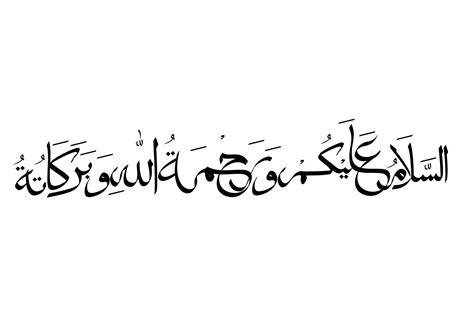 السَّلَامُ عَلَيْكُمْ وَرَحْمَةُ اللهِ وَبَرَكَاتُةُ